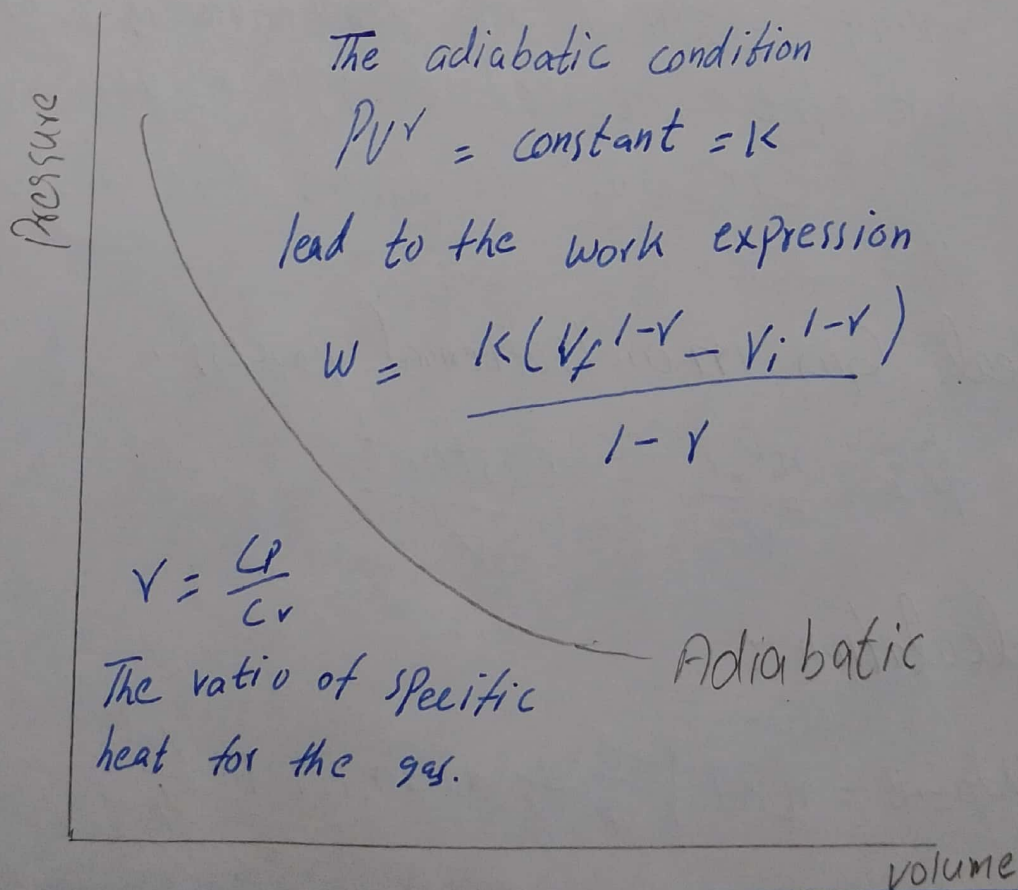 Pressure
The adiabatic condition
PVγ = constant = K
lead to the work expression
W = K(Vf^1-γ - Vi^1-γ)
1-γ
γ = CP
Cv
The ratio of specific
heat for the gas.
Adiabatic
volume